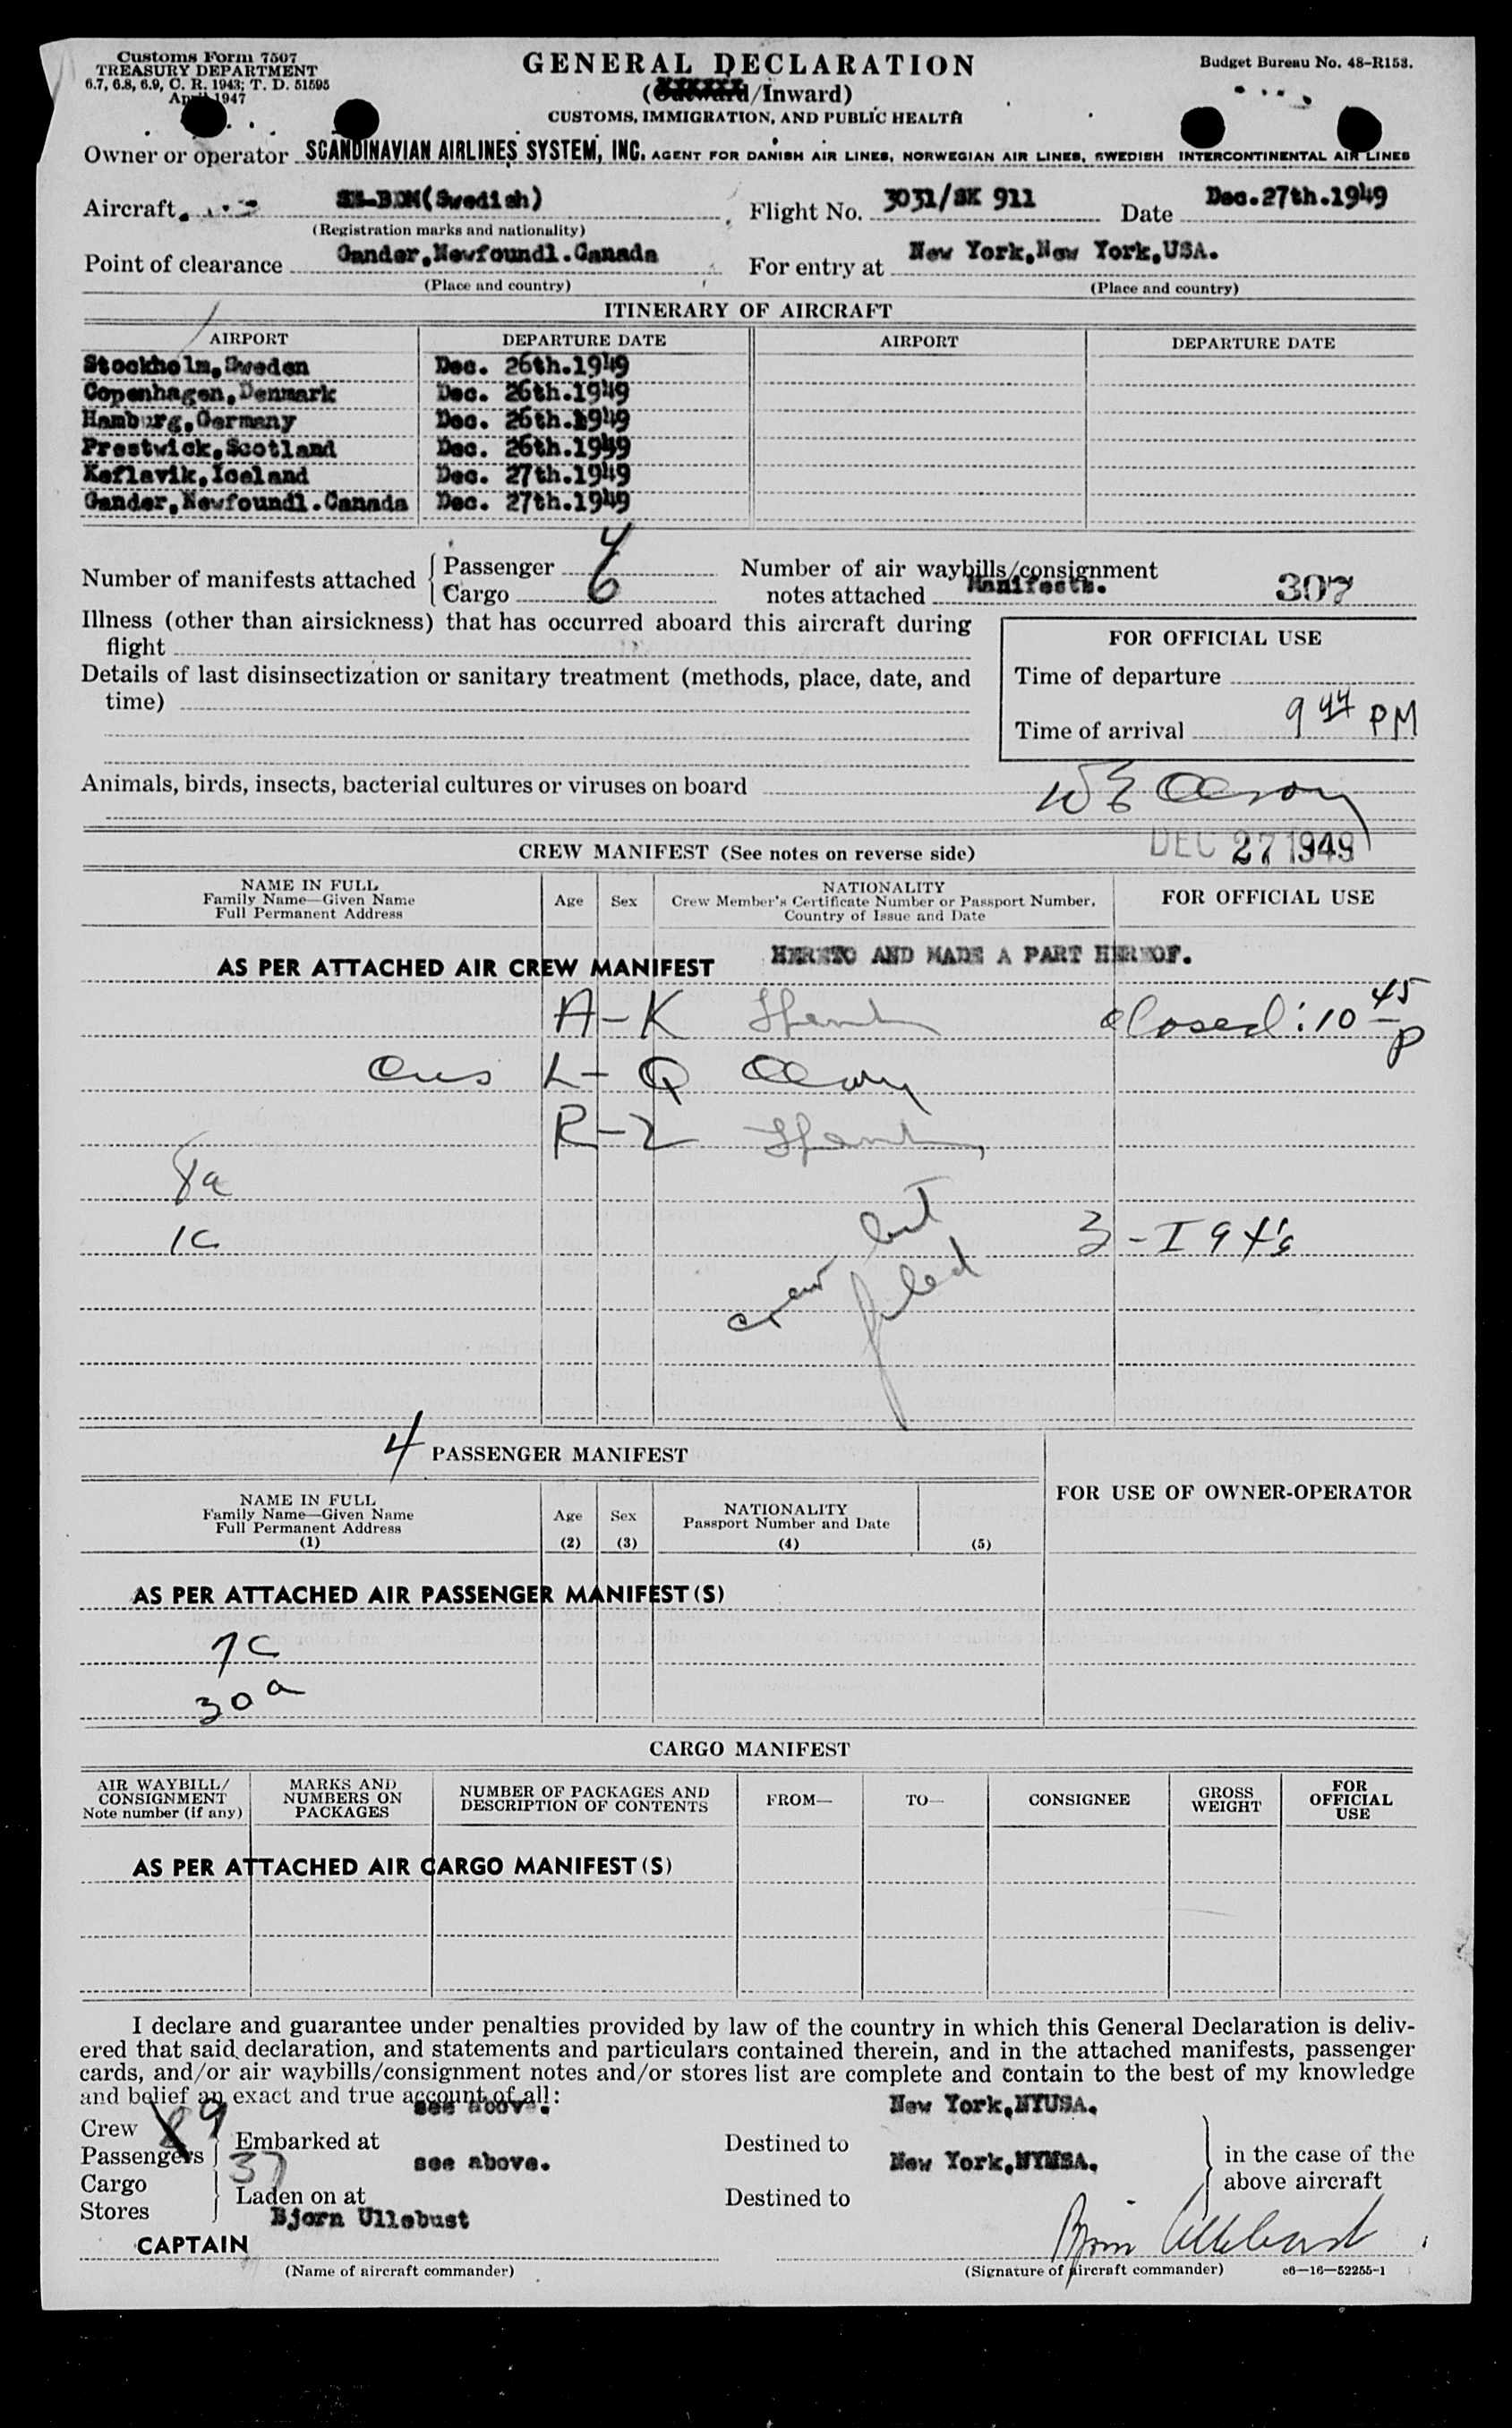 Customs Form 7507
TREASURY DEPARTMENT
6.7, 6.8, 6.9, C. R. 1943; T. D. 51595
April 1947
GENERAL DECLARATION
(Outward/Inward)
CUSTOMS, IMMIGRATION, AND PUBLIC HEALTH
Budget Bureau No. 48-R153.
Owner or operator SCANDINAVIAN AIRLINES SYSTEM, INC. AGENT FOR DANISH AIR LINES, NORWEGIAN AIR LINES, SWEDISH INTERCONTINENTAL AIR LINES
Aircraft SE-BDM(Swedish) Flight No. 3031/SK 911 Date Dec.27th.1949
(Registration marks and nationality)
Point of clearance Gander,Newfoundl.Canada For entry at New York,New York,USA.
(Place and country) (Place and country)
ITINERARY OF AIRCRAFT
AIRPORT DEPARTURE DATE AIRPORT DEPARTURE DATE
Stockholm,Sweden Dec. 26th.1949
Copenhagen,Denmark Dec. 26th.1949
Hamburg,Germany Dec. 26th.1949
Prestwick,Scotland Dec. 26th.1949
Keflavik,Iceland Dec. 27th.1949
Gander,Newfoundl.Canada Dec. 27th.1949
Number of manifests attached Passenger 4 Number of air waybills/consignment
Cargo 6 notes attached Manifests. 307
Illness (other than airsickness) that has occurred aboard this aircraft during
flight
Details of last disinsectization or sanitary treatment (methods, place, date, and
time)
FOR OFFICIAL USE
Time of departure
Time of arrival 9 44 PM
Animals, birds, insects, bacterial cultures or viruses on board
DEC 27 1949
CREW MANIFEST (See notes on reverse side)
NAME IN FULL
Family Name—Given Name
Full Permanent Address
Age Sex
NATIONALITY
Crew Member's Certificate Number or Passport Number,
Country of Issue and Date
FOR OFFICIAL USE
AS PER ATTACHED AIR CREW MANIFEST HERETO AND MADE A PART HEREOF.
A-K closed: 10 45 P
Cus L-Q
R-Z
8a
1c
crew list filed
3 - I 94's
4 PASSENGER MANIFEST
FOR USE OF OWNER-OPERATOR
NAME IN FULL
Family Name—Given Name
Full Permanent Address
(1)
Age
(2)
Sex
(3)
NATIONALITY
Passport Number and Date
(4)
(5)
AS PER ATTACHED AIR PASSENGER MANIFEST(S)
7c
30a
CARGO MANIFEST
AIR WAYBILL/
CONSIGNMENT
Note number (if any)
MARKS AND
NUMBERS ON
PACKAGES
NUMBER OF PACKAGES AND
DESCRIPTION OF CONTENTS
FROM—
TO—
CONSIGNEE
GROSS
WEIGHT
FOR
OFFICIAL
USE
AS PER ATTACHED AIR CARGO MANIFEST(S)
I declare and guarantee under penalties provided by law of the country in which this General Declaration is deliv-
ered that said declaration, and statements and particulars contained therein, and in the attached manifests, passenger
cards, and/or air waybills/consignment notes and/or stores list are complete and contain to the best of my knowledge
and belief an exact and true account of all:
see above. New York,NYUSA.
Crew 9
Passengers 37 Embarked at Destined to
see above. New York,NYUSA.
in the case of the
above aircraft
Cargo
Stores Laden on at Destined to
Bjorn Ullebust
CAPTAIN
(Name of aircraft commander)
(Signature of aircraft commander)
c6—16—52255-1